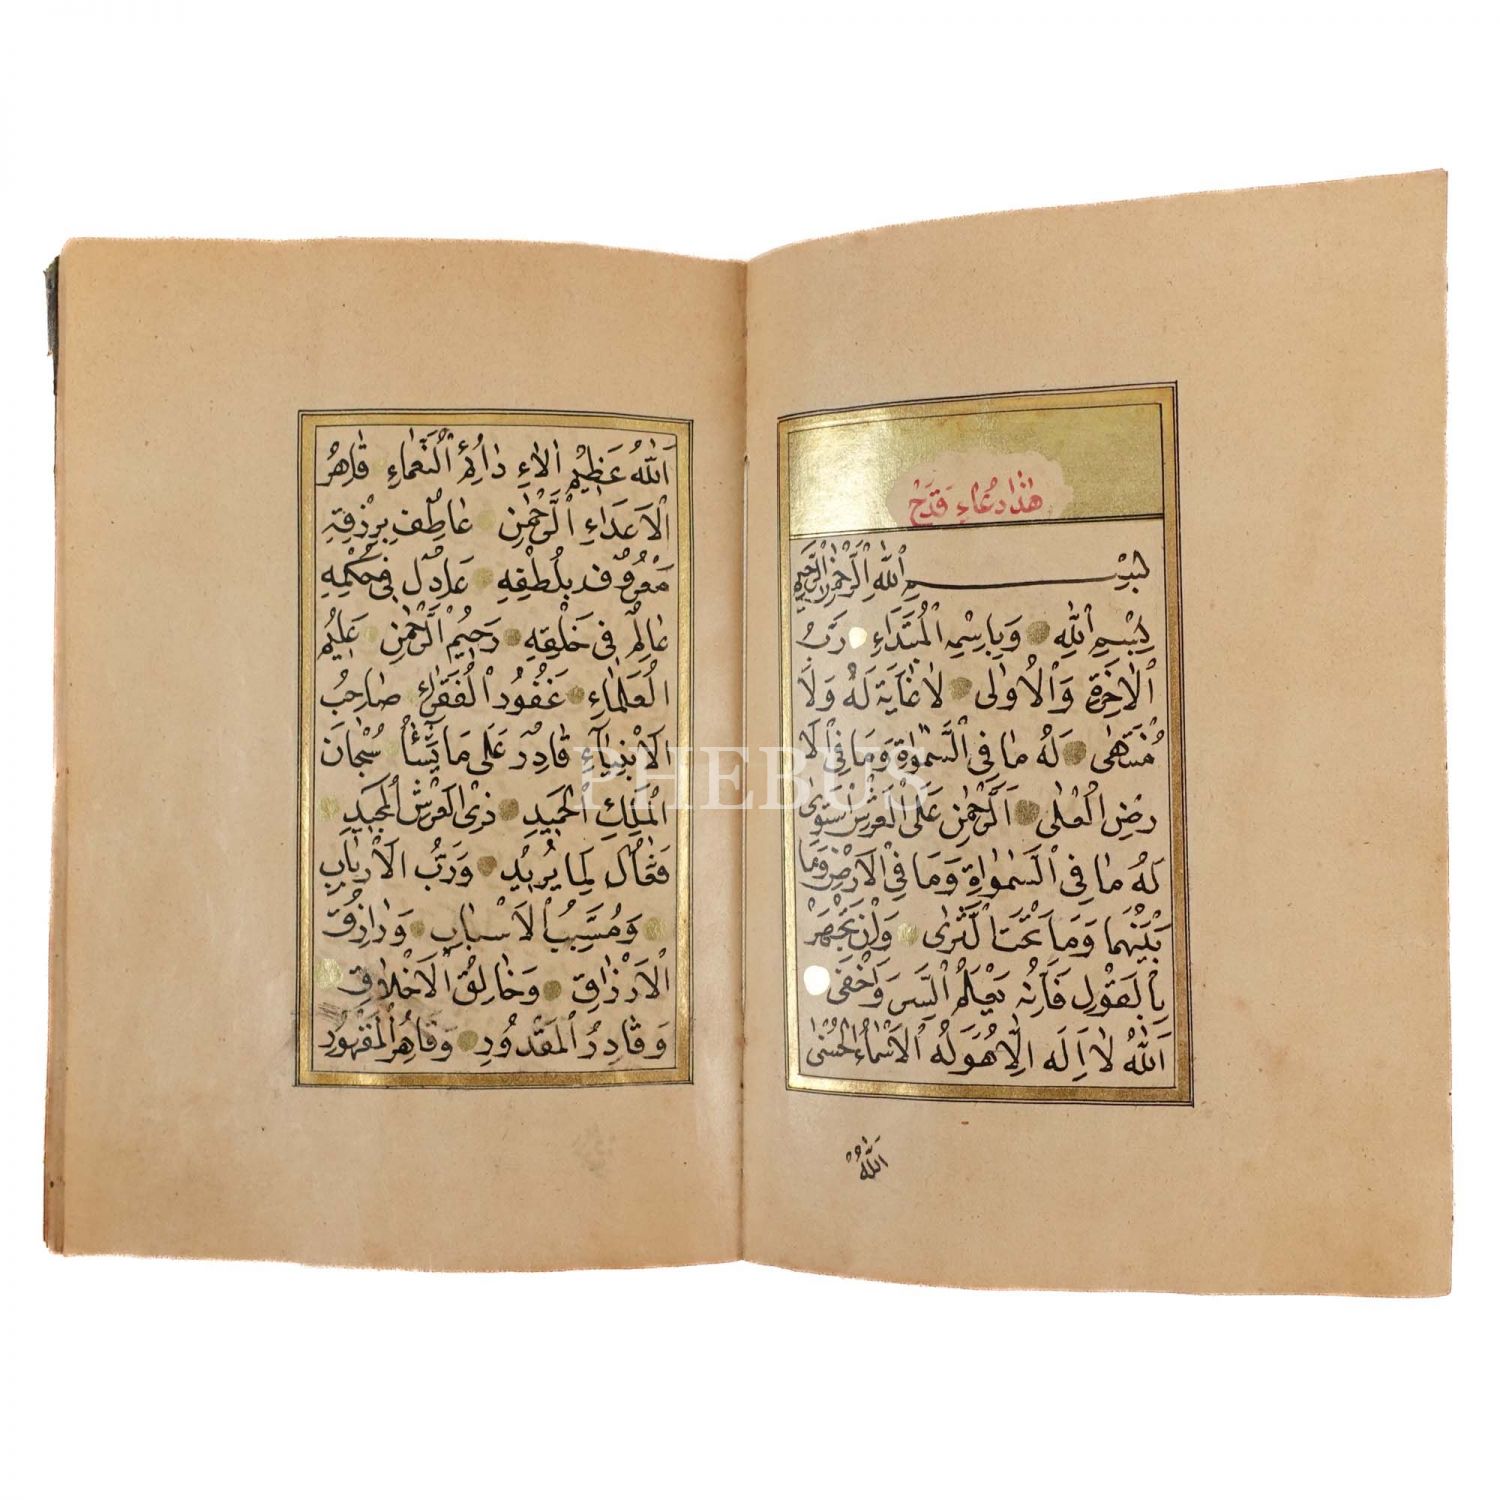 هٰذَا دُعَاءِ قَدَحْ
بِسْمِ اللهِ الرَّحْمٰنِ الرَّحِيمِ
بِسْمِ اللهِ وَبِاسْمِهِ الْمُبْتَدَاءِ رَبُّ
الْاٰخِرَةِ وَالْاُولٰى لَا غَايَةَ لَهُ وَلَا
مُنْتَهٰى لَهُ مَا فِى السَّمٰوَاةِ وَمَا فِى الْاَ
رْضِ الْعُلٰى اَلرَّحْمٰنِ عَلَى الْعَرْشِ اسْتَوٰى
لَهُ مَا فِى السَّمٰوَاةِ وَمَا فِى الْاَرْضِ وَمَا
بَيْنَهُمَا وَمَا تَحْتَ الثَّرٰى وَاِنْ تَجْهَرْ
بِالْقَوْلِ فَاِنَّهُ يَعْلَمُ السِّرَ وَاَخْفٰى
اَللهُ لَا اِلٰهَ اِلَّا هُوَ لَهُ الْاَسْمَاءُ الْحُسْنٰى
اَللهُ
اَللهُ عَظِيمُ الْاٰلَاءِ دَائِمُ النَّعْمَاءِ قَاهِرُ
الْاَعْدَاءِ الرَّحْمٰنِ عَاطِفٌ بِرِزْقِهِ
مَعْرُوفٌ بِلُطْفِهِ عَادِلٌ فِى حُكْمِهِ
عَالِمٌ فِى خَلْقِهِ رَحِيمُ الرَّحْمٰنِ عَلِيمُ
الْعُلَمَاءِ غَفُورُ الْفُقَرَاءِ صَاحِبُ
الْاَنْبِيَاءِ قَادِرٌ عَلٰى مَا يَشَاءُ سُبْحَانَ
الْمَلِكِ الْحَمِيدِ ذِى الْعَرْشِ الْمَجِيدِ
فَعَّالٌ لِمَا يُرِيدُ وَرَبُّ الْاَرْبَابِ
وَمُسَبِّبُ الْاَسْبَابِ وَرَازِقُ
الْاَرْزَاقِ وَخَالِقُ الْاَخْلَاقِ
وَقَادِرُ الْمَقْدُورِ وَقَاهِرُ الْمَقْهُورِ
PHEBUS